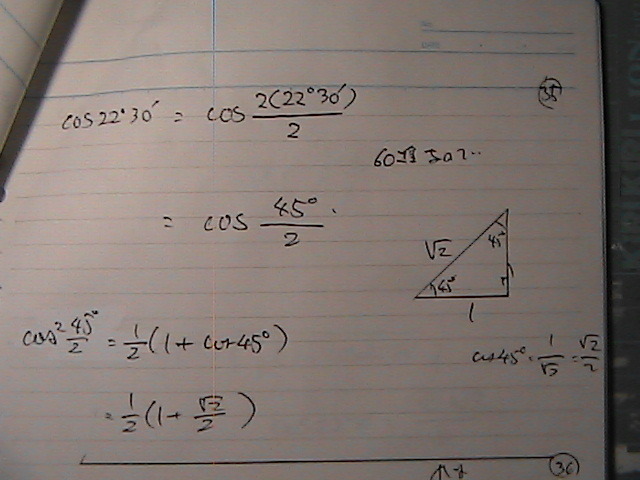 NO.
DATE
cos22°30′ = cos 2(22°30′)/2
35
= cos 45°/2 .
√2
45°
45°
1
cos² 45°/2 = 1/2(1 + cos45°)
cos45° = 1/√2 = √2/2
= 1/2(1 + √2/2)
36